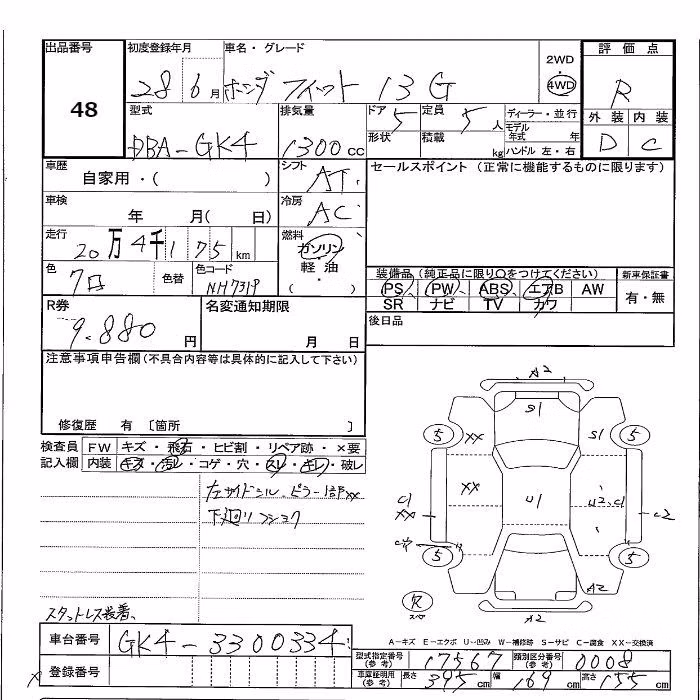 出品番号
48
初度登録年月
28 6月
車名・グレード
ホンダ フィット 13G
2WD
4WD
評価点
R
外装 内装
D C
型式
DBA-GK4
排気量
1300cc
ドア 5
形状
定員 5人
積載 kg
ディーラー・並行
モデル年式 年
ハンドル 左・右
車歴
自家用・( )
シフト AT
セールスポイント(正常に機能するものに限ります)
車検
年 月( 日)
冷房 AC
走行
20万4千175km
燃料
ガソリン
軽油
・
( )
色
クロ
色替
色コード
NH731P
装備品(純正品に限り○をつけてください)
PS PW ABS エアB AW
SR ナビ TV カワ
新車保証書
有・無
R券
9.880円
名変通知期限
月 日
後日品
注意事項申告欄(不具合内容等は具体的に記入して下さい)
修復歴 有 〔箇所 〕
検査員記入欄
FW キズ・飛石・ヒビ割・リペア跡・×要
内装 キズ・汚レ・コゲ・穴・スレ・キレ・破レ
左サイドシル、ピラー1部XX
下廻リフショク
スタットレス装着、
A2
S1
5 XX S1 5
XX U1 U2、C1
C1
XX
C2
5 5
A2
R
スペア
A2
A-キズ E-エクボ U-凹み W-補修跡 S-サビ C-腐食 XX-交換済
車台番号
GK4-3300334
登録番号
型式指定番号(参考) 17567
類別区分番号(参考) 0008
車庫証明用(参考) 長さ 395cm 幅 169cm 高さ 155cm